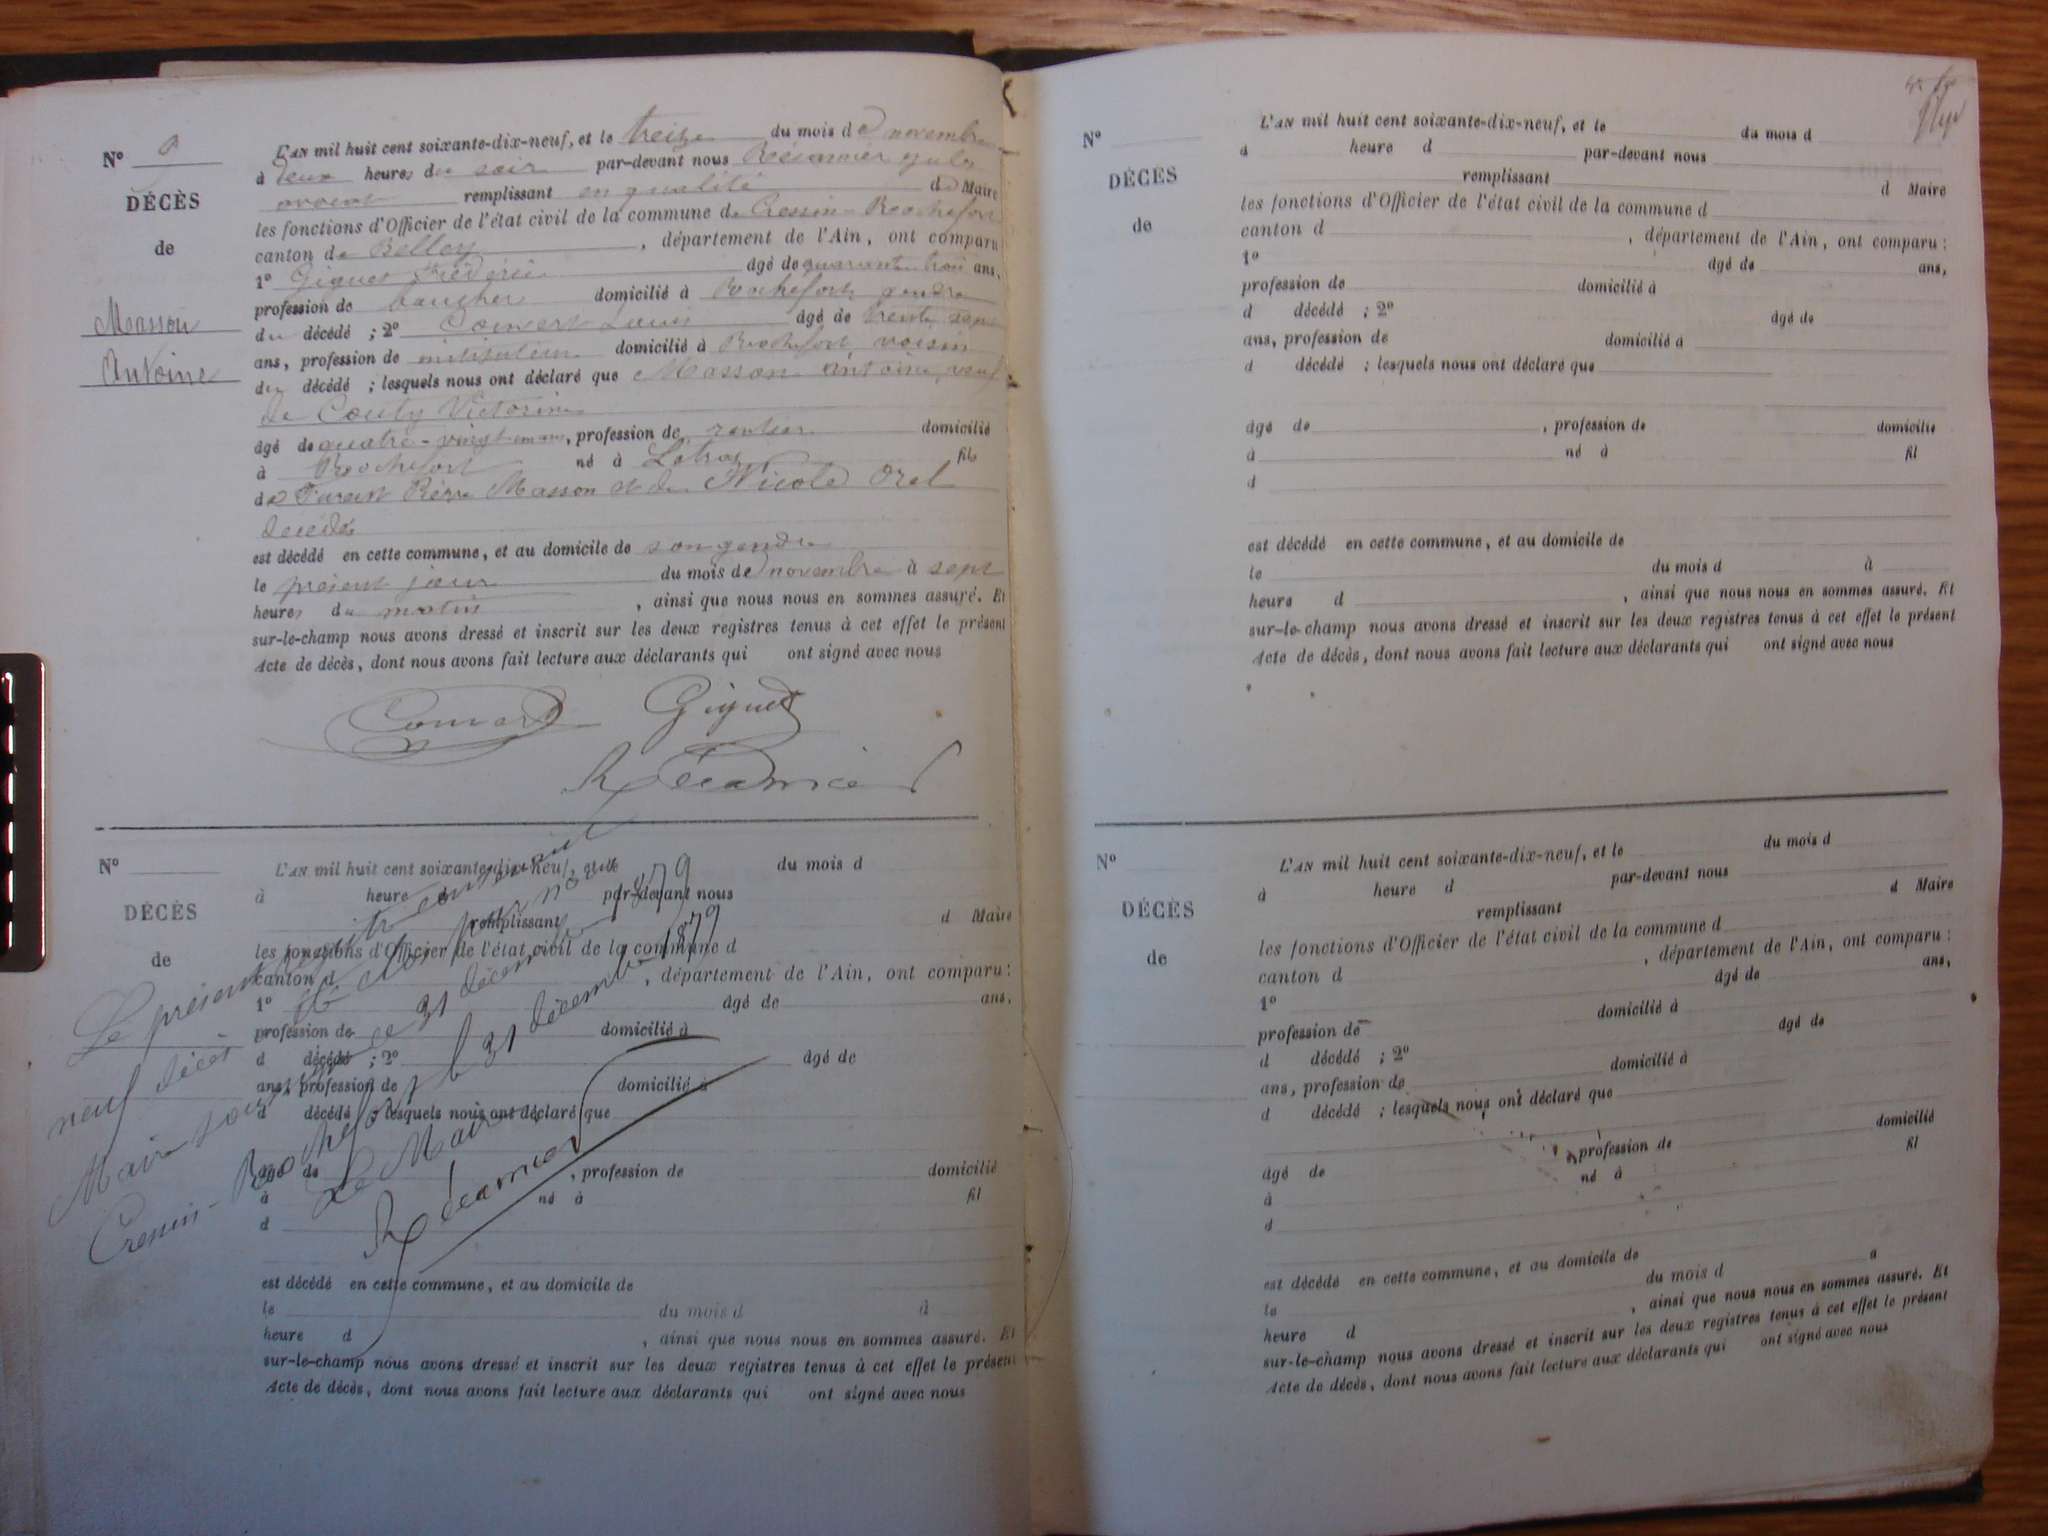 N° 9
DÉCÈS
de
Masson
Antoine
L'AN mil huit cent soixante-dix-neuf, et le treize du mois de novembre
à deux heures du soir par-devant nous Récamier
avocat remplissant en qualité de Maire
les fonctions d'Officier de l'état civil de la commune de Cressin-Rochefort
canton de Belley, département de l'Ain, ont comparu
1° Giguet Frédéric âgé de quarante trois ans,
profession de domicilié à Rochefort gendre
du décédé ; 2° Louis âgé de trente sept
ans, profession de instituteur domicilié à Rochefort voisin
du décédé ; lesquels nous ont déclaré que Masson Antoine, veuf
de Couty Victorine
âgé de quatre-vingt un ans, profession de rentier domicilié
à Rochefort né à fils
de Pierre Masson et de Nicole Orel
décédés
est décédé en cette commune, et au domicile de son gendre
le présent jour du mois de novembre à sept
heures du matin, ainsi que nous nous en sommes assuré. Et
sur-le-champ nous avons dressé et inscrit sur les deux registres tenus à cet effet le présent
Acte de décès, dont nous avons fait lecture aux déclarants qui ont signé avec nous
Giguet
Récamier
N°
DÉCÈS
de
L'AN mil huit cent soixante-dix-neuf, et le du mois d
à heure d par-devant nous
remplissant d Maire
les fonctions d'Officier de l'état civil de la commune d
canton d , département de l'Ain, ont comparu :
1° âgé de ans,
profession de domicilié à
d décédé ; 2° âgé de
ans, profession de domicilié à
d décédé ; lesquels nous ont déclaré que
âgé de , profession de domicilié
à né à fil
d
est décédé en cette commune, et au domicile de
le du mois d à
heure d , ainsi que nous nous en sommes assuré. Et
sur-le-champ nous avons dressé et inscrit sur les deux registres tenus à cet effet le présent
Acte de décès, dont nous avons fait lecture aux déclarants qui ont signé avec nous
Le présent registre contenant
neuf décès a été clos par nous
Maire soussigné ce 31 décembre 1879
Cressin-Rochefort le 31 décembre 1879
Le Maire
Récamier
N°
DÉCÈS
de
L'AN mil huit cent soixante-dix-neuf, et le du mois d
à heure d par-devant nous
remplissant d Maire
les fonctions d'Officier de l'état civil de la commune d
canton d , département de l'Ain, ont comparu :
1° âgé de ans,
profession de domicilié à
d décédé ; 2° âgé de
ans, profession de domicilié à
d décédé ; lesquels nous ont déclaré que
âgé de , profession de domicilié
à né à fil
d
est décédé en cette commune, et au domicile de
le du mois d à
heure d , ainsi que nous nous en sommes assuré. Et
sur-le-champ nous avons dressé et inscrit sur les deux registres tenus à cet effet le présent
Acte de décès, dont nous avons fait lecture aux déclarants qui ont signé avec nous
N°
DÉCÈS
de
L'AN mil huit cent soixante-dix-neuf, et le du mois d
à heure d par-devant nous
remplissant d Maire
les fonctions d'Officier de l'état civil de la commune d
canton d , département de l'Ain, ont comparu :
1° âgé de ans,
profession de domicilié à
d décédé ; 2° âgé de
ans, profession de domicilié à
d décédé ; lesquels nous ont déclaré que
âgé de , profession de domicilié
à né à fil
d
est décédé en cette commune, et au domicile de
le du mois d à
heure d , ainsi que nous nous en sommes assuré. Et
sur-le-champ nous avons dressé et inscrit sur les deux registres tenus à cet effet le présent
Acte de décès, dont nous avons fait lecture aux déclarants qui ont signé avec nous